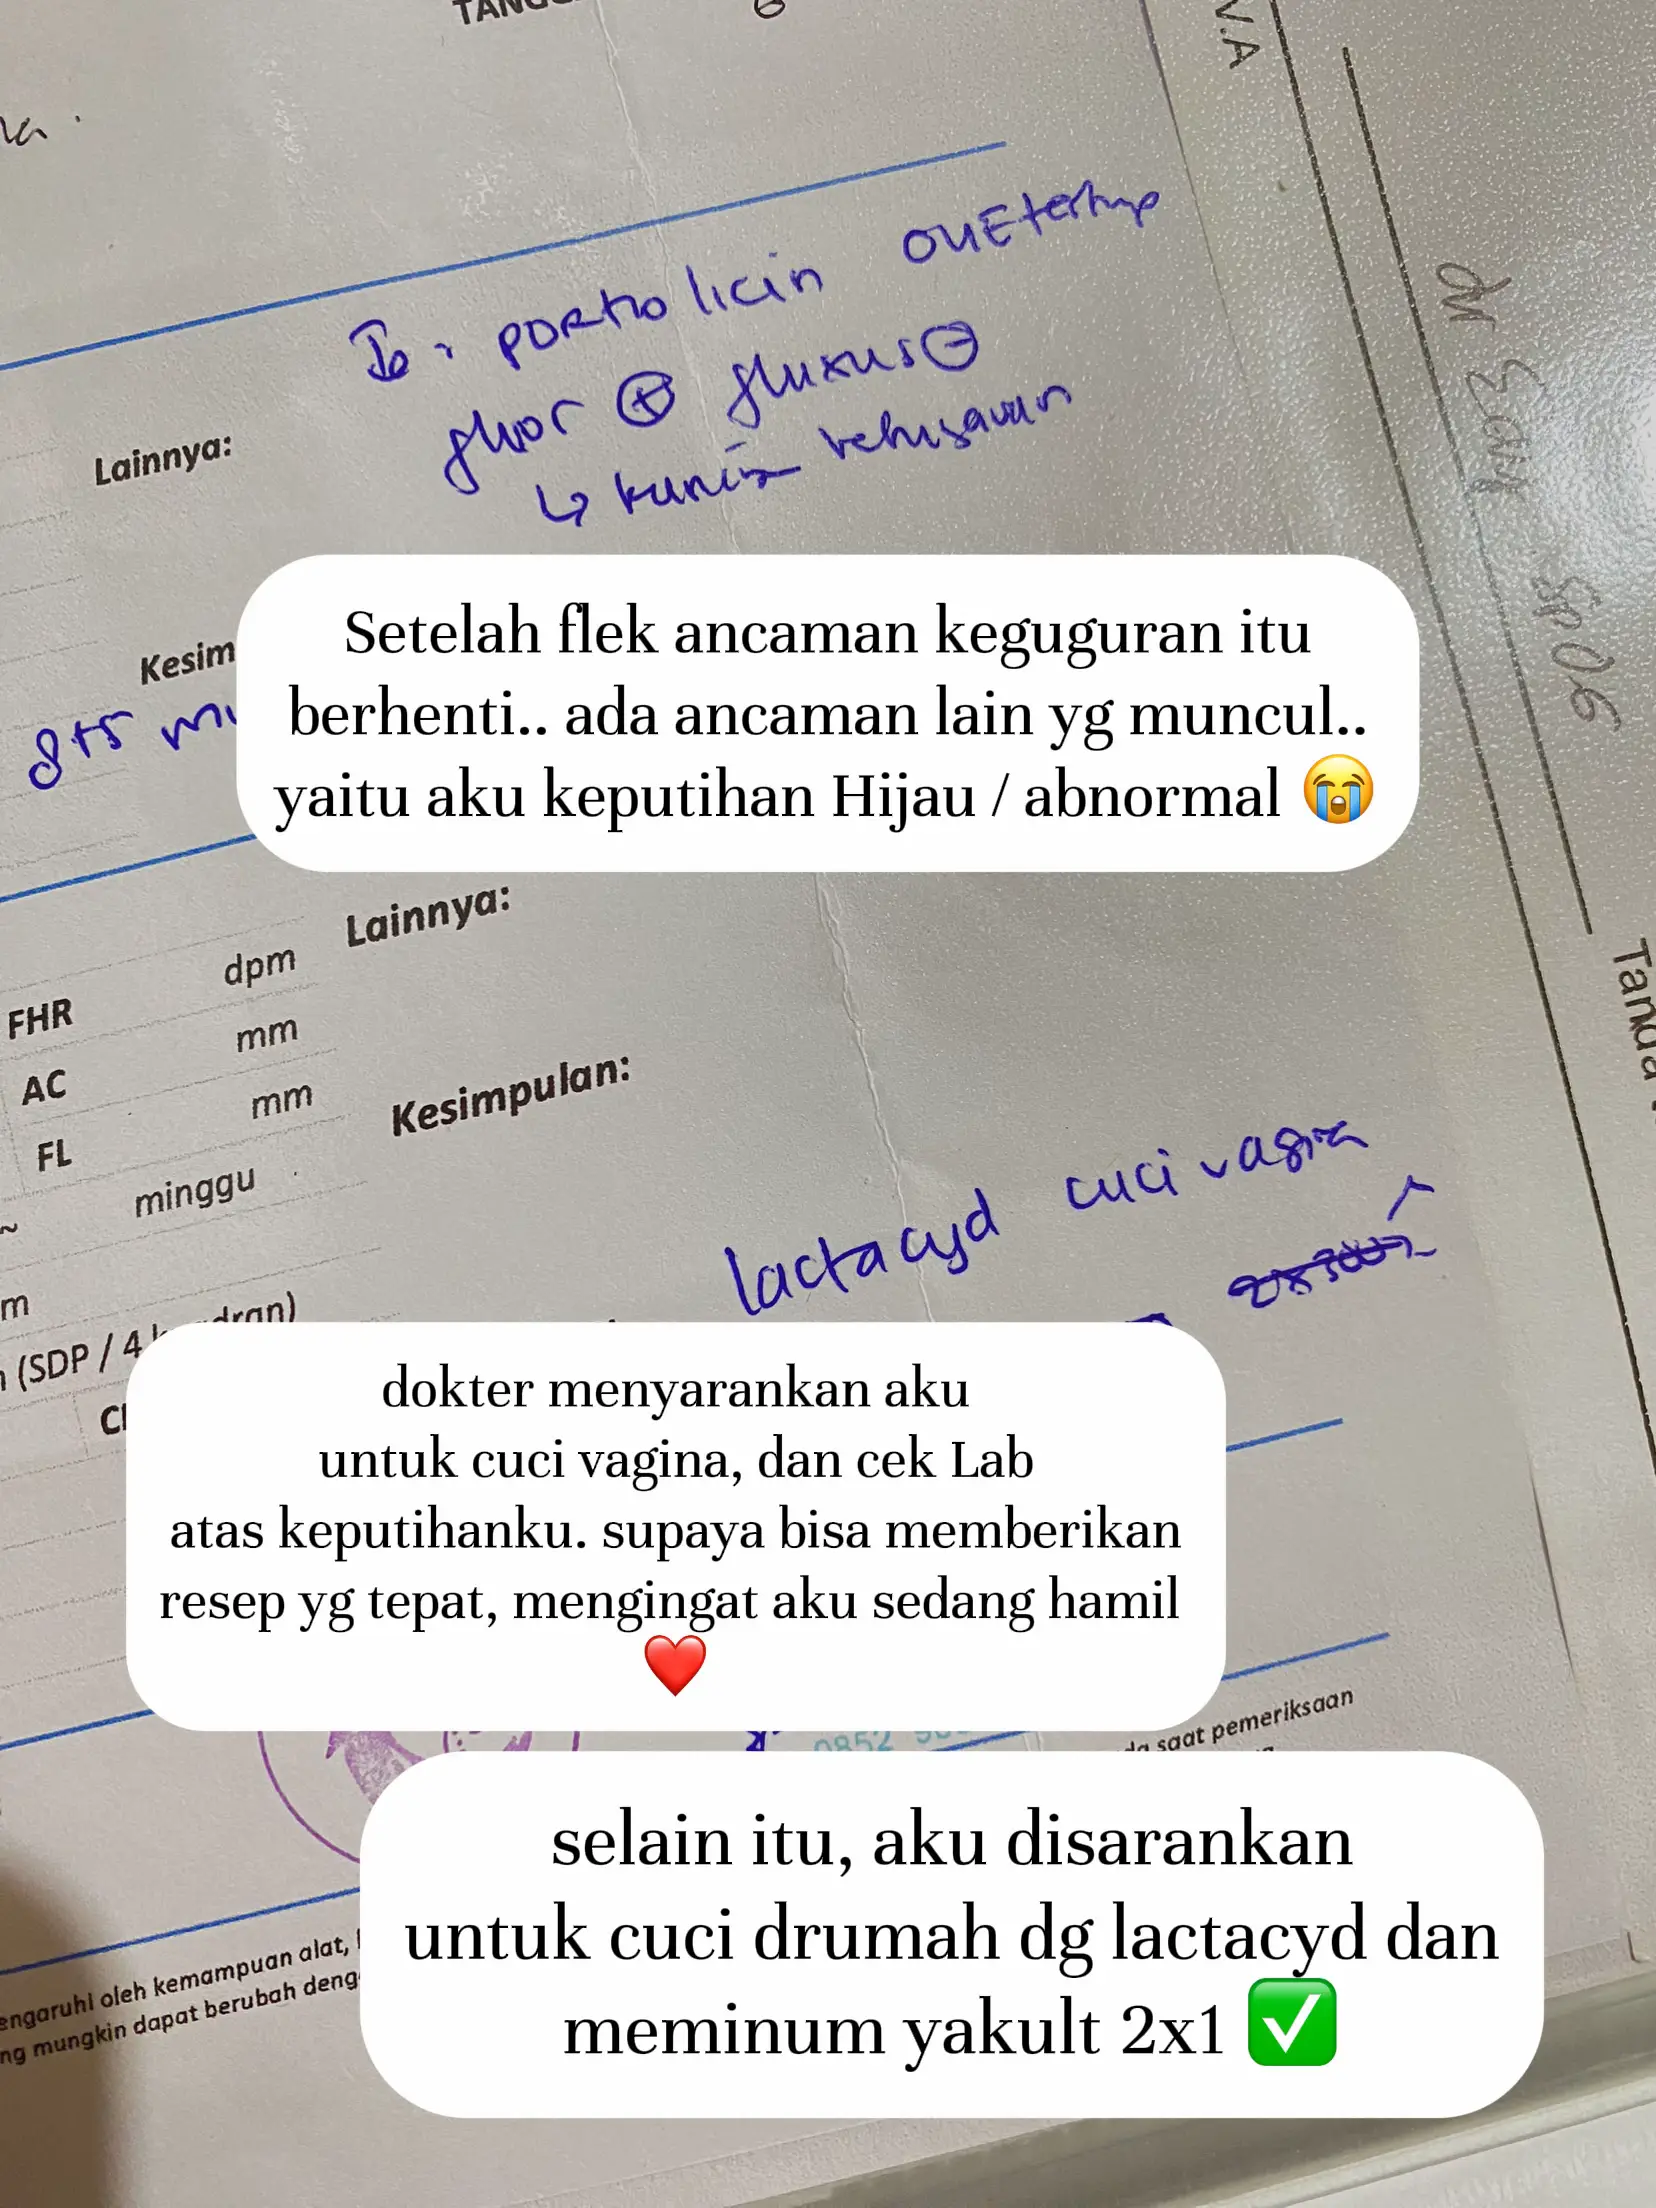 V.A
Io : portio licin OUE tertutup
fluor ⊕ fluxus ⊖
Lainnya:
Setelah flek ancaman keguguran itu
berhenti.. ada ancaman lain yg muncul..
yaitu aku keputihan Hijau / abnormal 😭
Kesim
8+5
Lainnya:
dpm
FHR
mm
AC
mm
FL
minggu
Kesimpulan:
lactacyd cuci vagina
m
(SDP / 4
dokter menyarankan aku
untuk cuci vagina, dan cek Lab
atas keputihanku. supaya bisa memberikan
resep yg tepat, mengingat aku sedang hamil
❤️
0852
saat pemeriksaan
selain itu, aku disarankan
untuk cuci drumah dg lactacyd dan
meminum yakult 2x1 ✅
engaruhi oleh kemampuan alat,
ng mungkin dapat berubah deng